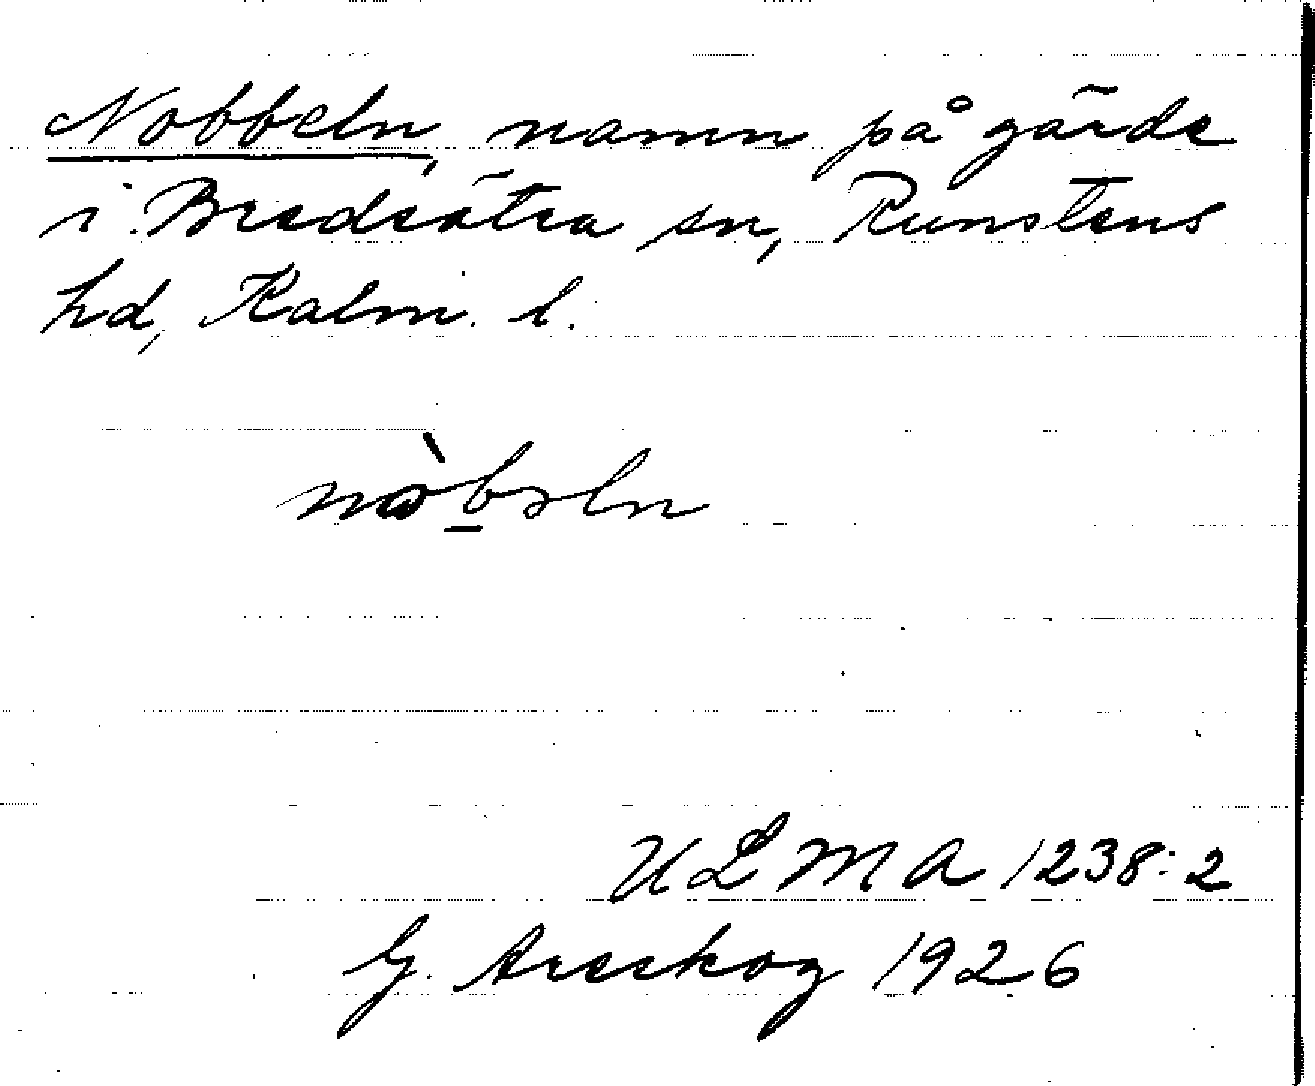 Nobbeln, namn på gärde
i Bredsätra sn, Runstens
hd, Kalm. l.
nòb̲əln
ULMA 1238:2
G. Areskog 1926